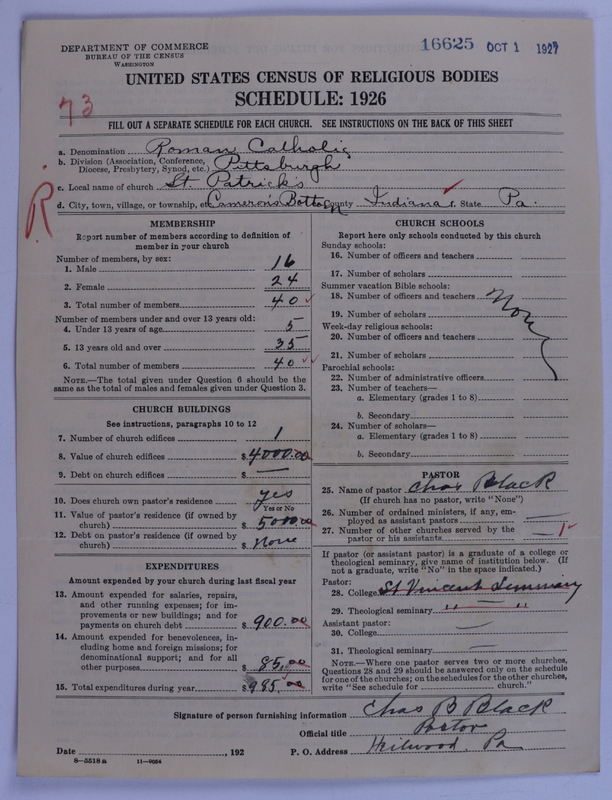 DEPARTMENT OF COMMERCE
BUREAU OF THE CENSUS
WASHINGTON
16625 OCT 1 1927
UNITED STATES CENSUS OF RELIGIOUS BODIES
SCHEDULE: 1926
73
FILL OUT A SEPARATE SCHEDULE FOR EACH CHURCH. SEE INSTRUCTIONS ON THE BACK OF THIS SHEET
a. Denomination Roman Catholic
b. Division (Association, Conference, Diocese, Presbytery, Synod, etc.) Pittsburgh
c. Local name of church St. Patrick's
R
d. City, town, village, or township, etc. Cameron's Bottom County Indiana State Pa.
MEMBERSHIP
Report number of members according to definition of
member in your church
Number of members, by sex:
1. Male 16
2. Female 24
3. Total number of members 40
Number of members under and over 13 years old:
4. Under 13 years of age 5
5. 13 years old and over 35
6. Total number of members 40
NOTE.—The total given under Question 6 should be
same as the total of males and females given under Question 3.
CHURCH BUILDINGS
See instructions, paragraphs 10 to 12
7. Number of church edifices 1
8. Value of church edifices $4000.00
9. Debt on church edifices $ —
10. Does church own pastor's residence yes
Yes or No
11. Value of pastor's residence (if owned by
church) $5000.00
12. Debt on pastor's residence (if owned by
church) $ None
EXPENDITURES
Amount expended by your church during last fiscal year
13. Amount expended for salaries, repairs,
and other running expenses; for im-
provements or new buildings; and for
payments on church debt $900.00
14. Amount expended for benevolences, in-
cluding home and foreign missions; for
denominational support; and for all
other purposes $85.00
15. Total expenditures during year $985.00
CHURCH SCHOOLS
Report here only schools conducted by this church
Sunday schools:
16. Number of officers and teachers
17. Number of scholars
Summer vacation Bible schools:
18. Number of officers and teachers None
19. Number of scholars
Week-day religious schools:
20. Number of officers and teachers
21. Number of scholars
Parochial schools:
22. Number of administrative officers
23. Number of teachers—
a. Elementary (grades 1 to 8)
b. Secondary
24. Number of scholars—
a. Elementary (grades 1 to 8)
b. Secondary
PASTOR
25. Name of pastor Chas Black
(If church has no pastor, write "None")
26. Number of ordained ministers, if any, em-
ployed as assistant pastors —
27. Number of other churches served by the
pastor or his assistants — 1
If pastor (or assistant pastor) is a graduate of a college or
theological seminary, give name of institution below. (If
not a graduate, write "No" in the space indicated.)
Pastor:
28. College St Vincent Seminary
29. Theological seminary " — "
Assistant pastor:
30. College —
31. Theological seminary —
NOTE.—Where one pastor serves two or more churches,
Questions 28 and 29 should be answered only on the schedule
for one of the churches; on the schedules for the other churches,
write "See schedule for church."
Signature of person furnishing information Chas B Black
Official title Pastor
Date , 192 P. O. Address Heilwood, Pa
8—5518a 11—9054